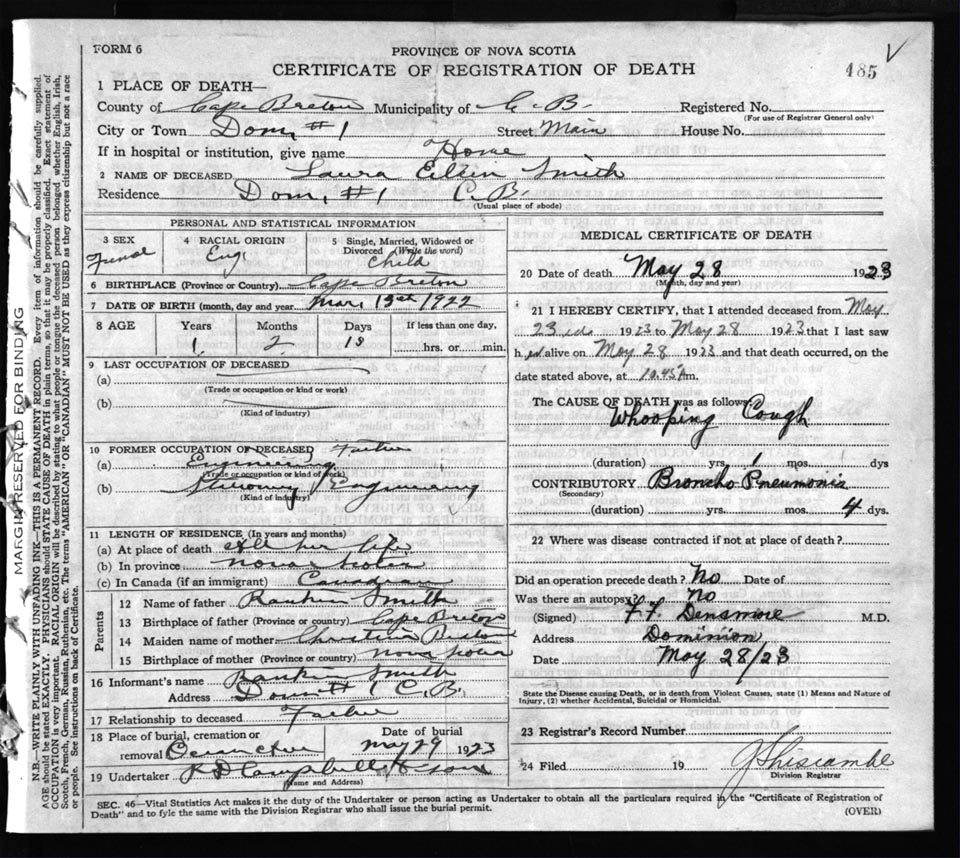 FORM 6
PROVINCE OF NOVA SCOTIA
CERTIFICATE OF REGISTRATION OF DEATH
485
1 PLACE OF DEATH—
County of Cape Breton Municipality of C.B. Registered No.
(For use of Registrar General only)
City or Town Dom, #1 Street Main House No.
If in hospital or institution, give name Home
2 NAME OF DECEASED Laura Smith
Residence Dom, #1 C.B.
(Usual place of abode)
PERSONAL AND STATISTICAL INFORMATION
3 SEX 4 RACIAL ORIGIN 5 Single, Married, Widowed or
Divorced (Write the word)
Eng Child
6 BIRTHPLACE (Province or Country) Cape Breton
7 DATE OF BIRTH (month, day and year) Mar, 13th 1922
8 AGE Years Months Days If less than one day,
1 2 hrs. or min.
9 LAST OCCUPATION OF DECEASED
(a)
(Trade or occupation or kind of work)
(b)
(Kind of industry)
10 FORMER OCCUPATION OF DECEASED Father
(a)
(Trade or occupation or kind of work)
(b) Engineering
(Kind of industry)
11 LENGTH OF RESIDENCE (In years and months)
(a) At place of death all her life
(b) In province Nova Scotia
(c) In Canada (if an immigrant) Canadian
Parents
12 Name of father Rankin Smith
13 Birthplace of father (Province or country) Cape Breton
14 Maiden name of mother Christina
15 Birthplace of mother (Province or country) Nova Scotia
16 Informant's name Rankin Smith
Address Dom #1 C.B.
17 Relationship to deceased Father
18 Place of burial, cremation or Date of burial
removal May 29 1923
19 Undertaker Campbell & Sons
(Name and Address)
MEDICAL CERTIFICATE OF DEATH
20 Date of death May 28 1923
(Month, day and year)
21 I HEREBY CERTIFY, that I attended deceased from May
23rd 1923 to May 28 1923 that I last saw
her alive on May 28 1923 and that death occurred, on the
date stated above, at 10.45 A m.
The CAUSE OF DEATH was as follows:
Whooping Cough
(duration) yrs. 1 mos. dys
CONTRIBUTORY Broncho Pneumonia
(Secondary)
(duration) yrs. mos. 4 dys.
22 Where was disease contracted if not at place of death?
Did an operation precede death? No Date of
Was there an autopsy? No
(Signed) F. F. Densmore M.D.
Address Dominion
Date May 28/23
State the Disease causing Death, or in death from Violent Causes, state (1) Means and Nature of
Injury, (2) whether Accidental, Suicidal or Homicidal.
23 Registrar's Record Number
24 Filed 19
Division Registrar
SEC. 46—Vital Statistics Act makes it the duty of the Undertaker or person acting as Undertaker to obtain all the particulars required in the "Certificate of Registration of
Death" and to fyle the same with the Division Registrar who shall issue the burial permit.
(OVER)
MARGIN RESERVED FOR BINDING
N.B.—WRITE PLAINLY WITH UNFADING INK—THIS IS A PERMANENT RECORD. Every item of information should be carefully supplied.
AGE should be stated EXACTLY. PHYSICIANS should STATE CAUSE OF DEATH in plain terms, so that it may be properly classified. Exact statement of
OCCUPATION is very important. RACIAL ORIGIN will be described by stating to what people or tongue the deceased person belonged, whether English, Irish,
Scotch, French, German, Russian, Ruthenian, etc. The terms "AMERICAN" OR "CANADIAN" MUST NOT BE USED as they express citizenship but not a race
or people. See instructions on back of Certificate.